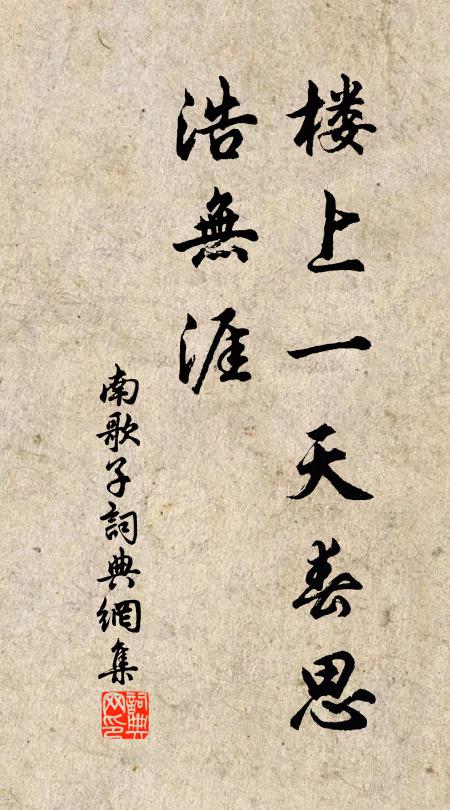 楼上一天春思
浩無涯
南歌子詞典網集
詞典
网印